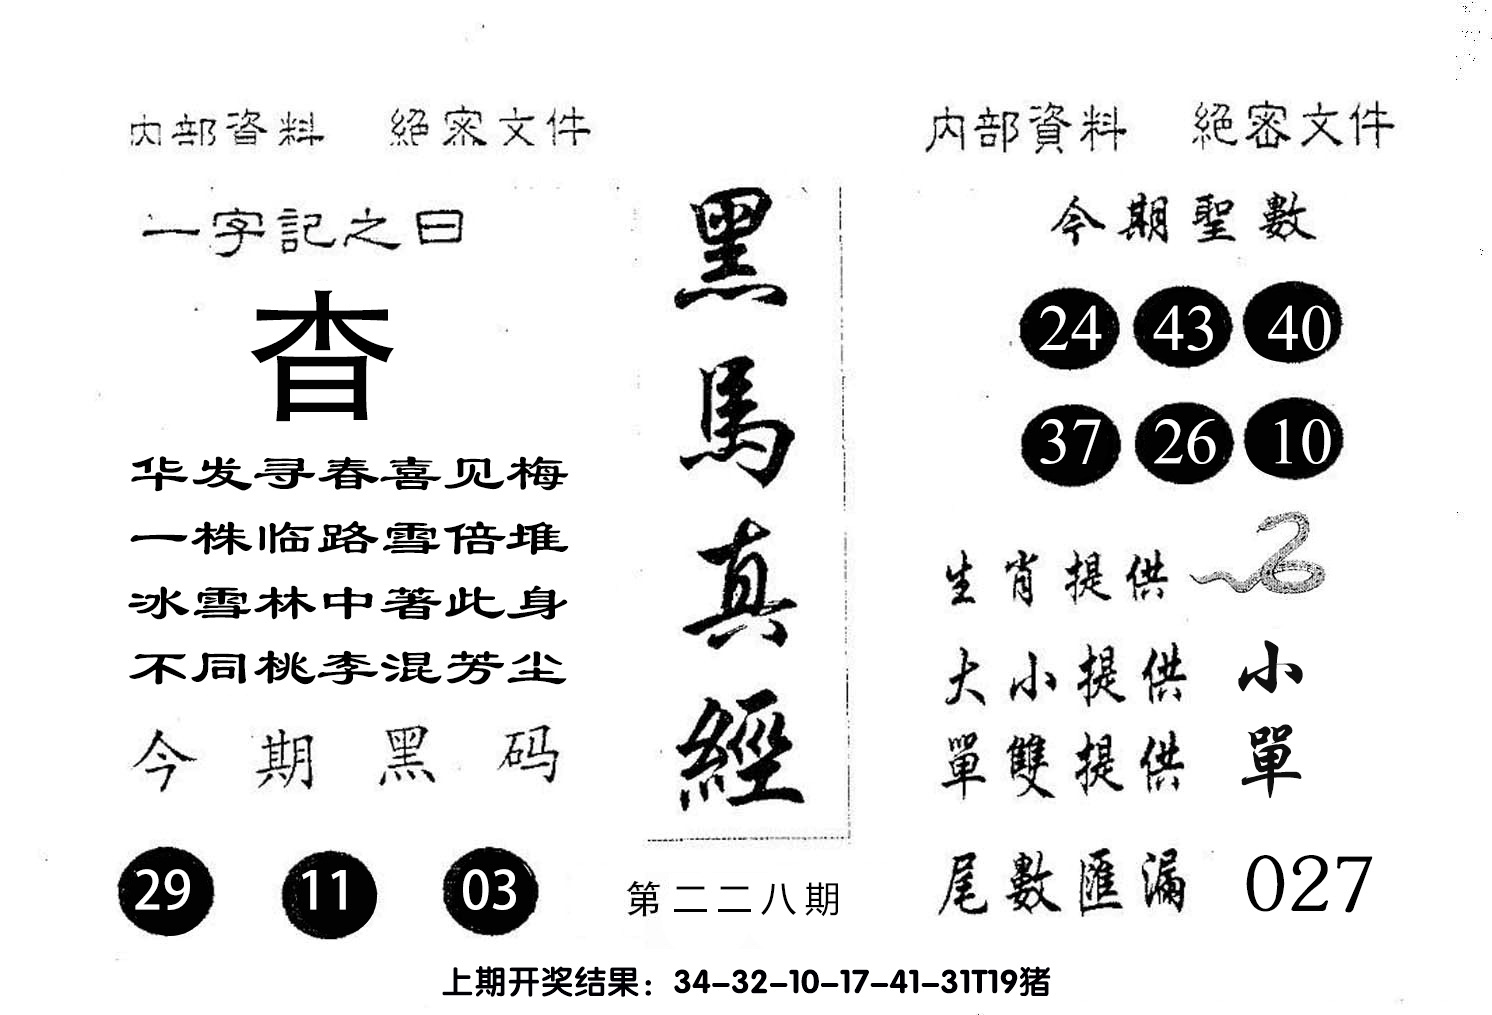 内部資料 絕密文件
一字記之曰
杳
华发寻春喜见梅
一株临路雪倍堆
冰雪林中著此身
不同桃李混芳尘
今期黑码
29 11 03
黑馬真經
第二二八期
内部資料 絕密文件
今期聖數
24 43 40
37 26 10
生肖提供
大小提供 小
單雙提供 單
尾數匯漏 027
上期开奖结果：34-32-10-17-41-31T19猪